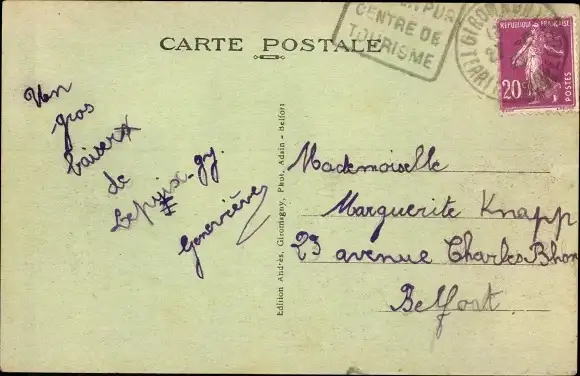 CENTRE DE
TOURISME
GIROMAGNY
REPUBLIQUE FRANÇAISE
20c
POSTES
CARTE POSTALE
Un
gros
baiser
de
Lepuix-gy.
Geneviève
Edition Andrès, Giromagny, Phot. Adain - Belfort
Mademoiselle
Marguerite Knapp
23 avenue Charles Bhon
Belfort